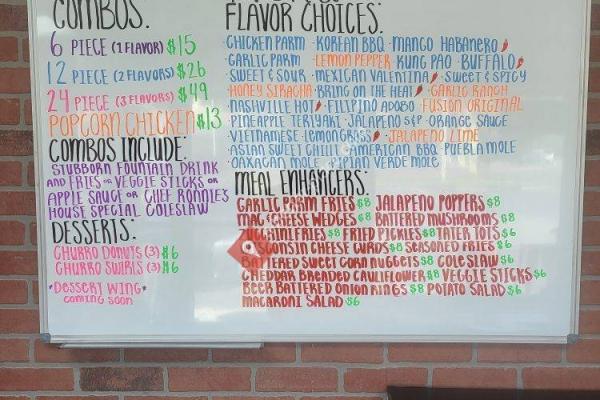 COMBOS:
6 PIECE (1 FLAVOR) $15
12 PIECE (2 FLAVORS) $26
24 PIECE (3 FLAVORS) $49
POPCORN CHICKEN $13
COMBOS INCLUDE:
STUBBORN FOUNTAIN DRINK
AND FRIES OR VEGGIE STICKS OR
APPLE SAUCE OR CHEF RONNIE'S
HOUSE SPECIAL COLESLAW
DESSERTS:
CHURRO DONUTS (3) $6
CHURRO SWIRLS (3) $6
*DESSERT WING*
COMING SOON
FLAVOR CHOICES:
·CHICKEN PARM ·KOREAN BBQ ·MANGO HABANERO
·GARLIC PARM ·LEMON PEPPER ·KUNG PAO ·BUFFALO
·SWEET & SOUR ·MEXICAN VALENTINA ·SWEET & SPICY
·HONEY SIRACHA ·BRING ON THE HEAT ·GARLIC RANCH
·NASHVILLE HOT ·FILIPINO ADOBO ·FUSION ORIGINAL
·PINEAPPLE TERIYAKI ·JALAPENO S&P ·ORANGE SAUCE
·VIETNAMESE LEMONGRASS ·JALAPENO LIME
·ASIAN SWEET CHILI ·AMERICAN BBQ ·PUEBLA MOLE
·OAXACAN MOLE ·PIPIAN VERDE MOLE
MEAL ENHANCERS:
GARLIC PARM FRIES $8 JALAPENO POPPERS $8
MAC & CHEESE WEDGES $8 BATTERED MUSHROOMS $8
FRIES $8 FRIED PICKLES $8 TATER TOTS $6
WISCONSIN CHEESE CURDS $8 SEASONED FRIES $6
BATTERED SWEET CORN NUGGETS $8 COLESLAW $6
CHEDDAR BREADED CAULIFLOWER $8 VEGGIE STICKS $6
BEER BATTERED ONION RINGS $8 POTATO SALAD $6
MACARONI SALAD $6